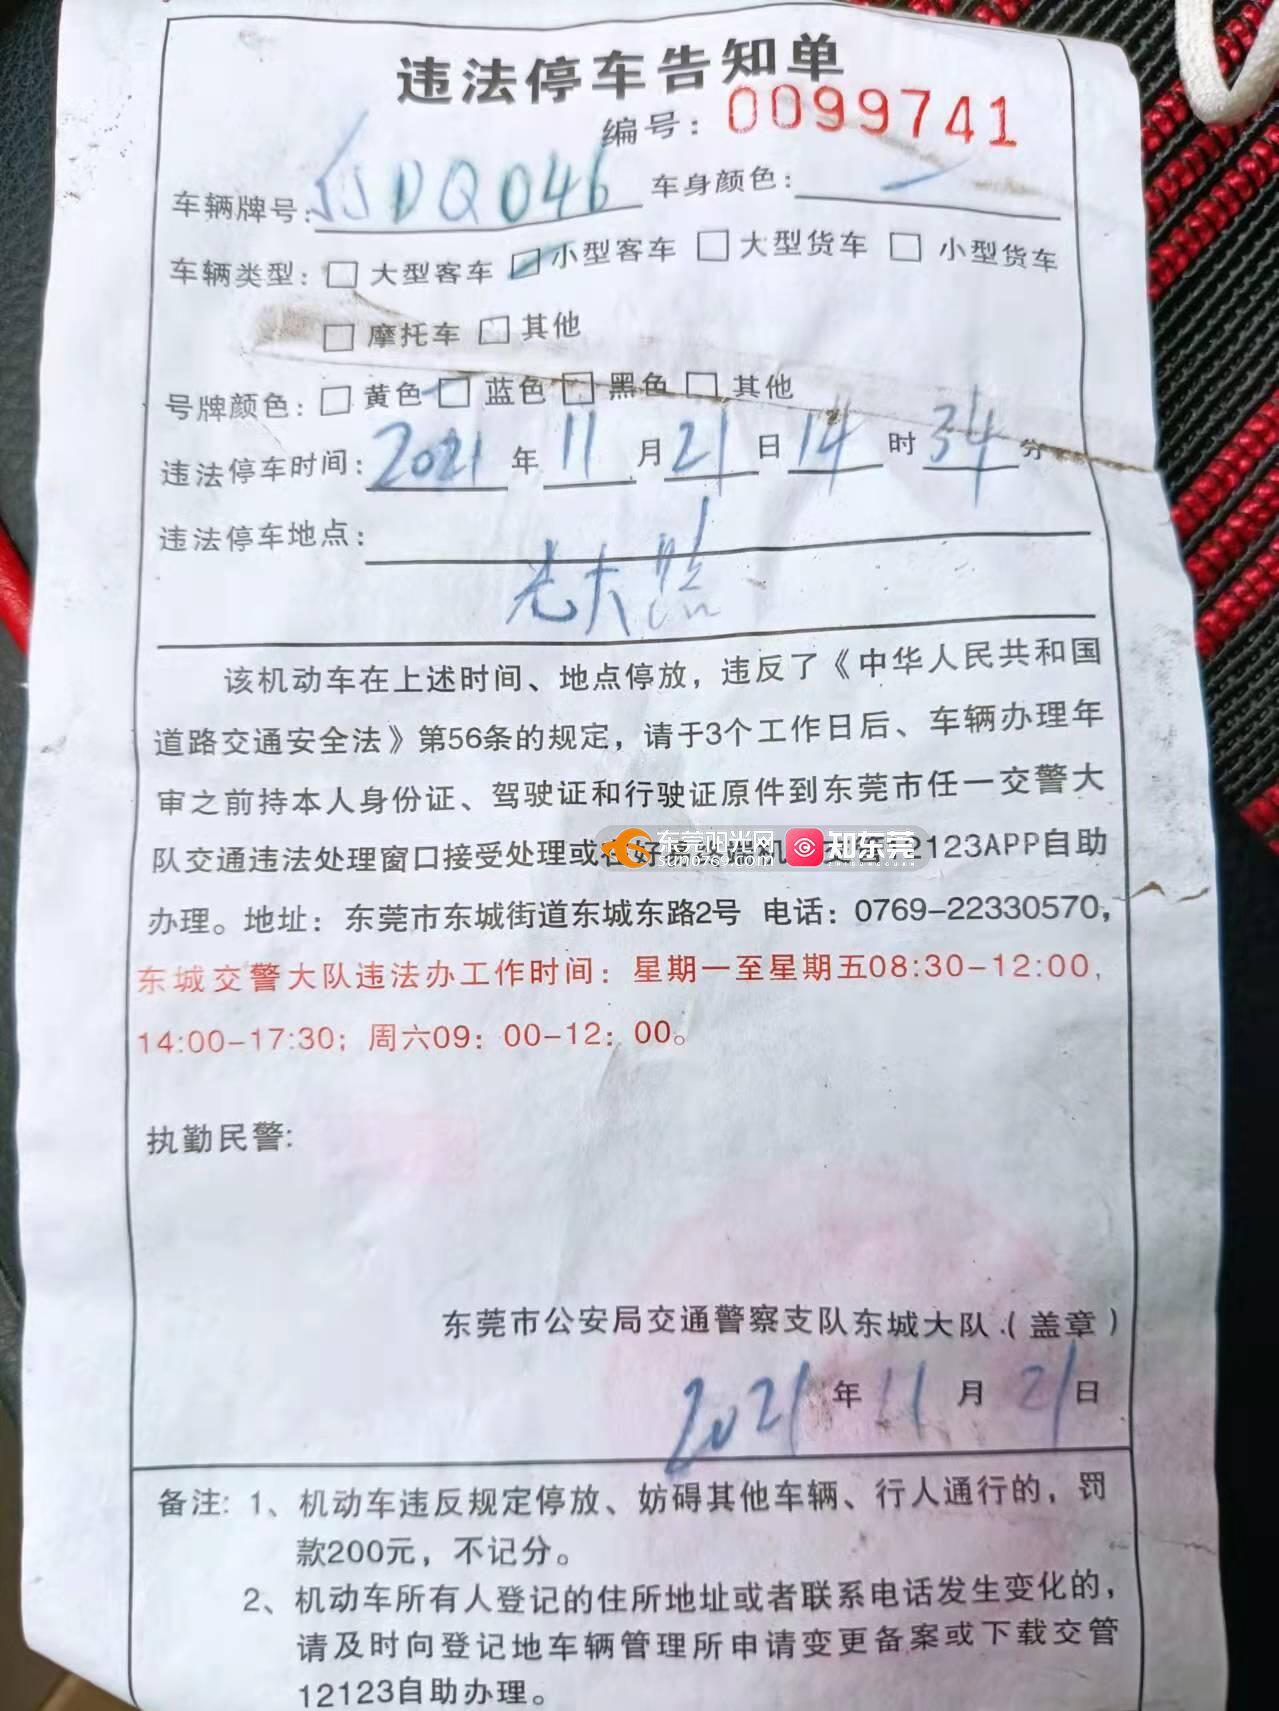 违法停车告知单
编号：0099741
车辆牌号：SDQ046 车身颜色：
车辆类型：□ 大型客车 ☑ 小型客车 □ 大型货车 □ 小型货车
□ 摩托车 □ 其他
号牌颜色：□ 黄色 □ 蓝色 □ 黑色 □ 其他
违法停车时间：2021 年 11 月 21 日 14 时 34 分
违法停车地点：
光大
该机动车在上述时间、地点停放，违反了《中华人民共和国
道路交通安全法》第56条的规定，请于3个工作日后、车辆办理年
审之前持本人身份证、驾驶证和行驶证原件到东莞市任一交警大
队交通违法处理窗口接受处理或在好 机 12123APP自助
东莞阳光网 知东莞
sun0769.com
办理。地址：东莞市东城街道东城东路2号 电话：0769-22330570，
东城交警大队违法办工作时间：星期一至星期五08:30-12:00，
14:00-17:30；周六09：00-12：00。
执勤民警：
东莞市公安局交通警察支队东城大队（盖章）
2021 年 11 月 21 日
备注：1、机动车违反规定停放、妨碍其他车辆、行人通行的，罚
款200元，不记分。
2、机动车所有人登记的住所地址或者联系电话发生变化的，
请及时向登记地车辆管理所申请变更备案或下载交管
12123自助办理。